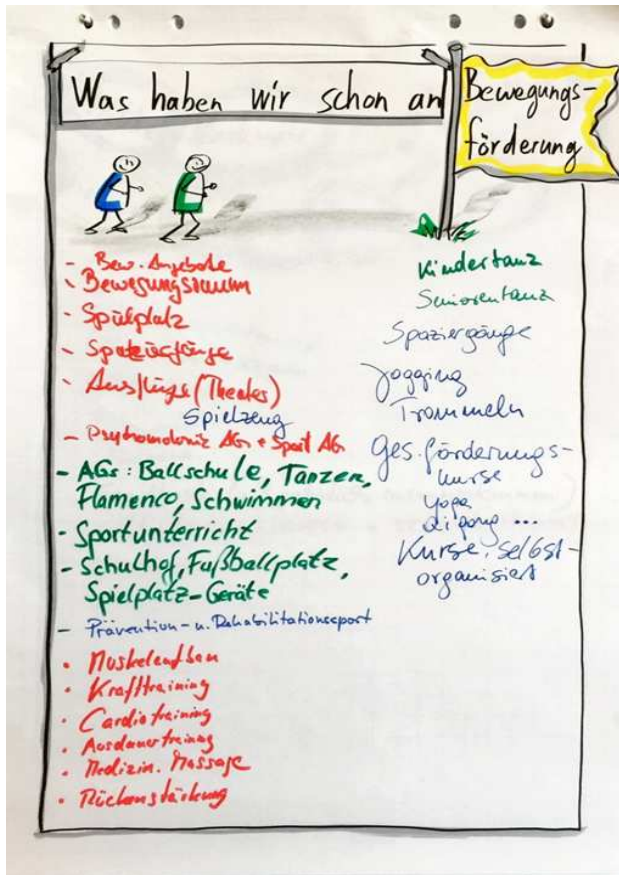 Was haben wir schon an
Bewegungs-
förderung
- Bew. Angebote
- Bewegungsraum
- Spielplatz
- Spaziergänge
- Ausflüge (Theater)
Spielzeug
- Psychomotorik AG + Sport AG
- AGs: Ballschule, Tanzen,
Flamenco, Schwimmen
- Sportunterricht
- Schulhof, Fußballplatz,
Spielplatz-Geräte
- Prävention- u. Rehabilitationssport
• Muskelaufbau
• Krafttraining
• Cardiotraining
• Ausdauertraining
• Medizin. Massage
• Rückenstärkung
Kindertanz
Seniorentanz
Spaziergänge
Jogging
Trommeln
Ges.förderungs-
kurse
Yoga
Qigong ...
Kurse, selbst-
organisiert